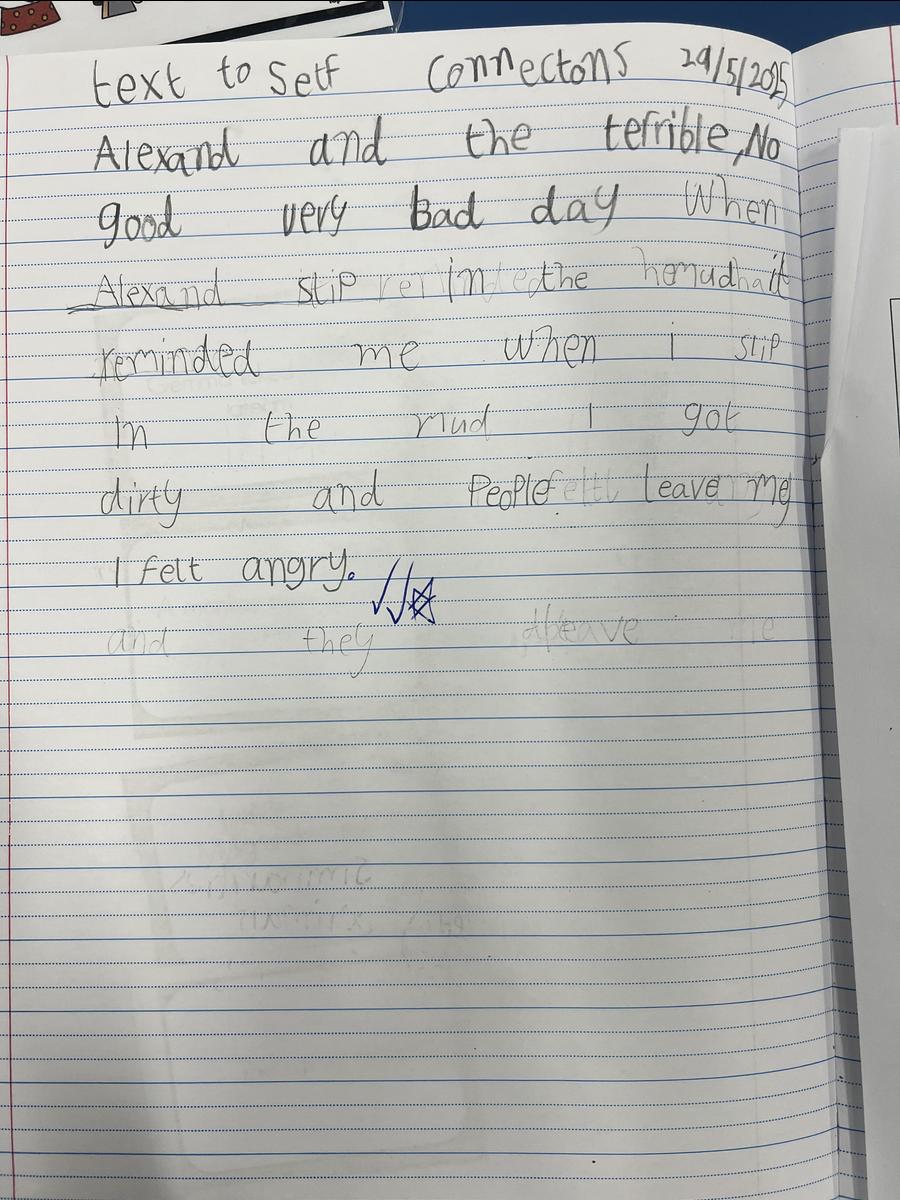 text to Self Connectons 29/5/2025
Alexand and the terrible, No
good very bad day When
Alexand slip in the mud it
reminded me when i slip
in the mud I got
dirty and People Leave me
I felt angry.
and they leave me